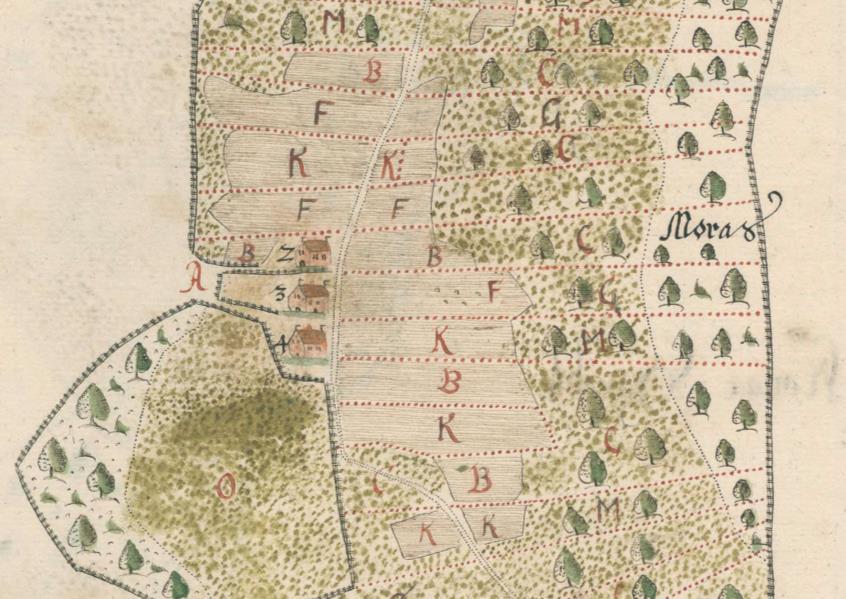 M M
B C
F G
K K: C
F F
B 2 B C Moras
A
3 F C
4 K M
B
K
C
O C B
M
K K